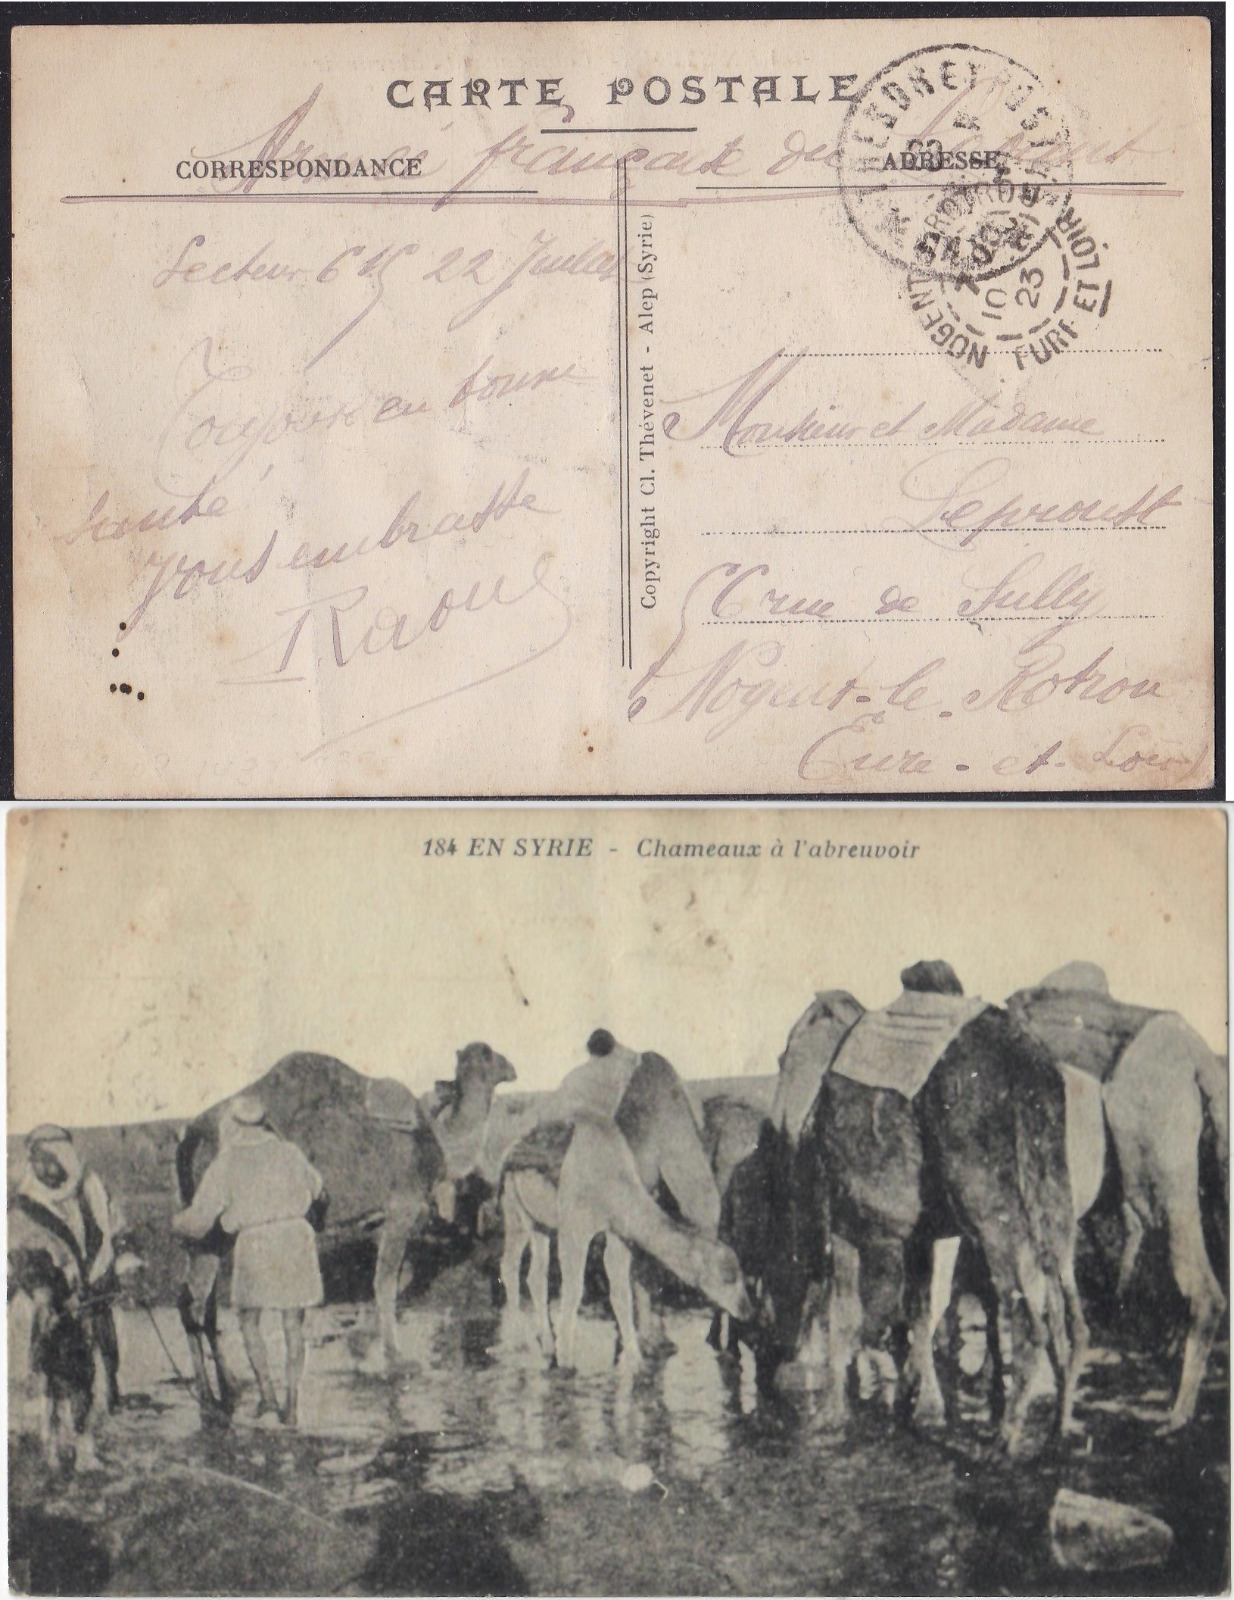 CARTE POSTALE
Armée française du Levant
CORRESPONDANCE
ADRESSE
Secteur 615 22 Juillet
Toujours en bonne
santé
vous embrasse
Raoul
Copyright Cl. Thévenet - Alep (Syrie)
TRESOR ET POSTES
NOGENT LE ROTROU
EURE ET LOIR
10
23
Monsieur et Madame
Leproust
rue de Sully
Nogent-le-Rotrou
Eure-et-Loir
184 EN SYRIE - Chameaux à l'abreuvoir